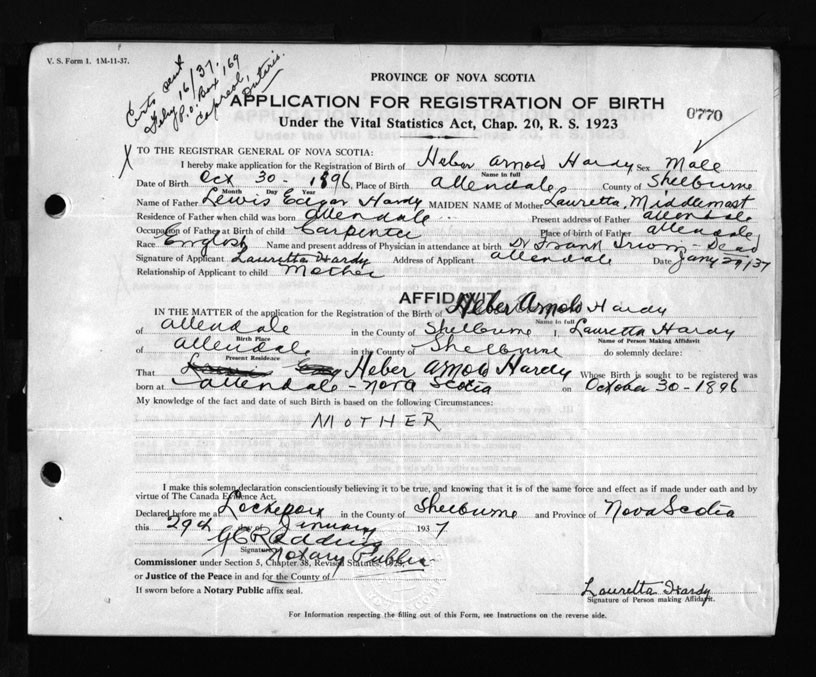 V. S. Form 1. 1M-11-37.
Certs sent
Feby 16/37.
P.O. Box 169
Capreol,
Ontario.
PROVINCE OF NOVA SCOTIA
APPLICATION FOR REGISTRATION OF BIRTH
0770
Under the Vital Statistics Act, Chap. 20, R. S. 1923
X TO THE REGISTRAR GENERAL OF NOVA SCOTIA:
I hereby make application for the Registration of Birth of Heber Arnold Hardy Sex Male
Name in full
Date of Birth Oct 30 - 1896, Place of Birth Allendale County of Shelburne
Month Day Year
Name of Father Lewis Edgar Hardy MAIDEN NAME of Mother Lauretta Middlemast
Residence of Father when child was born Allendale Present address of Father Allendale
Occupation of Father at Birth of child Carpenter Place of birth of Father Allendale
Race English Name and present address of Physician in attendance at birth Dr Frank Irwin - Dead
Signature of Applicant Lauretta Hardy Address of Applicant Allendale Date Jany 29/37
Relationship of Applicant to child Mother
AFFIDAVIT
IN THE MATTER of the application for the Registration of the Birth of Heber Arnold Hardy
Name in full
of Allendale in the County of Shelburne, I, Lauretta Hardy
Birth Place Name of Person Making Affidavit
of Allendale in the County of Shelburne do solemnly declare:
Present Residence
That Heber Arnold Hardy Whose Birth is sought to be registered was
born at Allendale - Nova Scotia on October 30 - 1896
My knowledge of the fact and date of such Birth is based on the following Circumstances:
MOTHER
I make this solemn declaration conscientiously believing it to be true, and knowing that it is of the same force and effect as if made under oath and by
virtue of The Canada Evidence Act.
Declared before me at Lockeport in the County of Shelburne and Province of Nova Scotia
this 29th day of January 1937
Redding
Signature
Notary Public
Commissioner under Section 5, Chapter 38, Revised Statutes, 1923,
or Justice of the Peace in and for the County of
If sworn before a Notary Public affix seal.
Lauretta Hardy
Signature of Person making Affidavit.
For Information respecting the filling out of this Form, see Instructions on the reverse side.